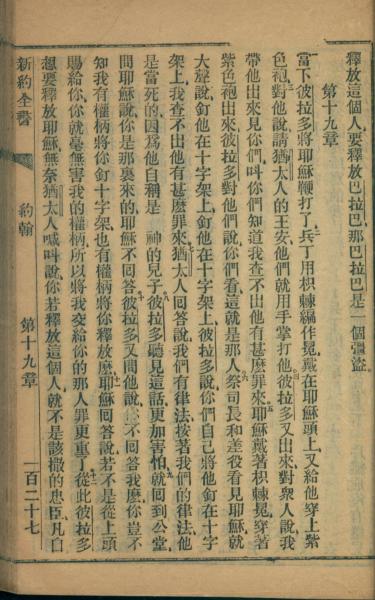 釋放這個人要釋放巴拉巴那巴拉巴是一個強盜
第十九章
當下彼拉多將耶穌鞭打了兵丁用枳棘編作冕戴在耶穌頭上又給他穿上紫
色袍對他說請猶太人的王安他們就用手掌打他彼拉多又出來對衆人說我
帶他出來見你們叫你們知道我查不出他有甚麼罪來耶穌戴著枳棘冕穿著
紫色袍出來彼拉多對他們說你們看這就是那人祭司長和差役看見耶穌就
大聲說釘他在十字架上釘他在十字架上彼拉多說你們自己將他釘在十字
架上我查不出他有甚麼罪來猶太人回答說我們有律法按著我們的律法他
是當死的因爲他自稱是 神的兒子彼拉多聽見這話更加害怕就回到公堂
問耶穌說你是那裏來的耶穌不回答彼拉多又問他說你不回答我麼你豈不
知我有權柄將你釘十字架也有權柄將你釋放麼耶穌回答說若不是從上頭
賜給你你就毫無害我的權柄所以將我交給你的那人罪更重了從此彼拉多
想要釋放耶穌無奈猶太人喊叫說你若釋放這個人就不是該撒的忠臣凡自
新約全書 約翰 第十九章 一百二十七